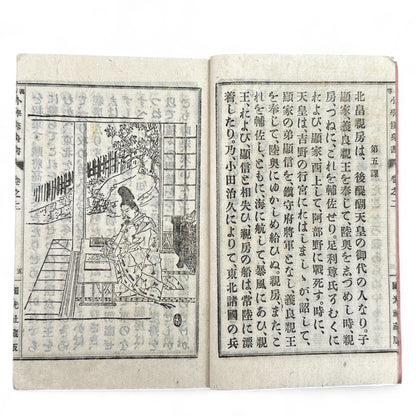 第五課
北畠親房は、後醍醐天皇の御代の人なり。子
顯家義良親王を奉じて、陸奥をしづめし時、親
房つねに、これを輔佐せり。足利尊氏そむくに
および、顯家西上して、阿部野に戰死す。時に、
天皇は、吉野の行宮におはしまししが、詔して、
顯家の弟顯信を、鎮守府將軍となし、義良親王
を奉じて、陸奥にゆかしめ給ひぬ。親房、また、こ
れを輔佐し、ともに、海に航して、暴風にあひ、親
王、および、顯信と相失ひ、親房の船は、常陸に漂
著したり。乃、小田治久によりて、東北諸國の兵
小學修身書
五
國光社藏版